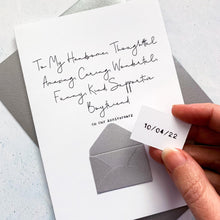 To My Handsome, Thoughtful
Amazing, Caring, Wonderful,
Funny, Kind, Supportive
Boyfriend
on our anniversary
10/04/22